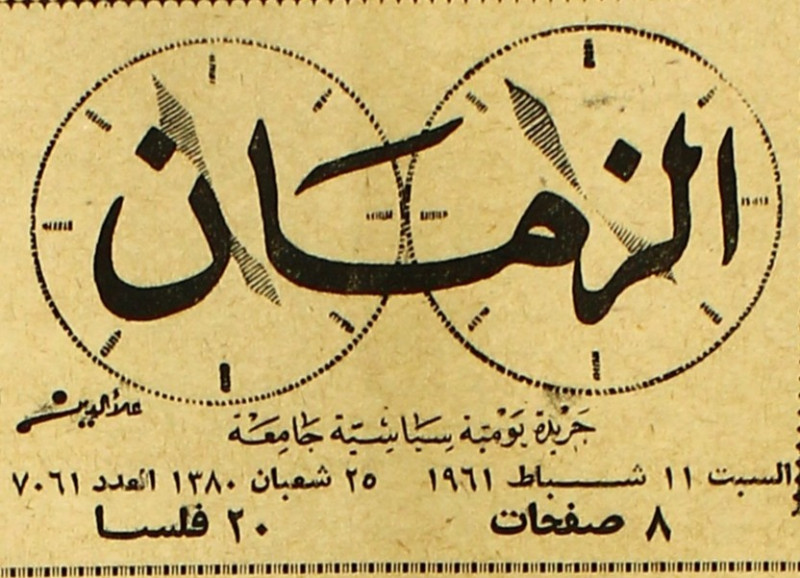 الزمان
علاء الدين
جريدة يومية سياسية جامعة
السبت ١١ شباط ١٩٦١ ٢٥ شعبان ١٣٨٠ العدد ٧٠٦١
٨ صفحات ٢٠ فلسا